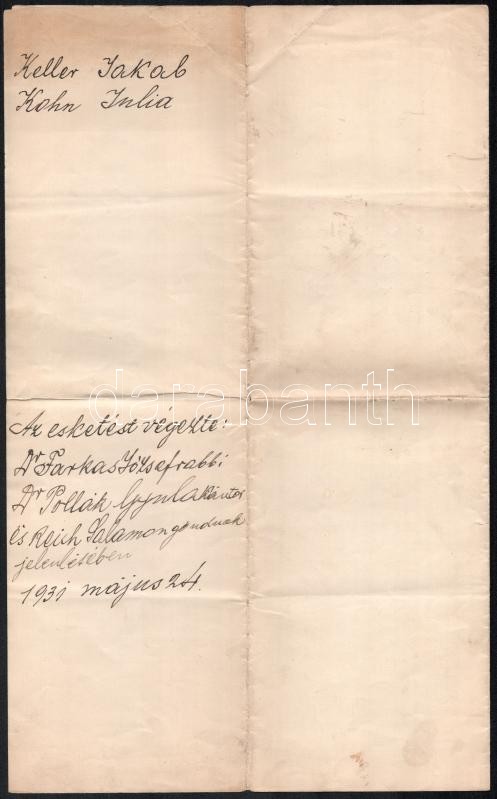 Keller Jakab
Kohn Julia
darabanth
Az esketést végezte:
Dr Farkas József rabbi
Dr Pollák Gyula kántor
és Reich Salamon gondnok
jelenlésében
1931 május 24.